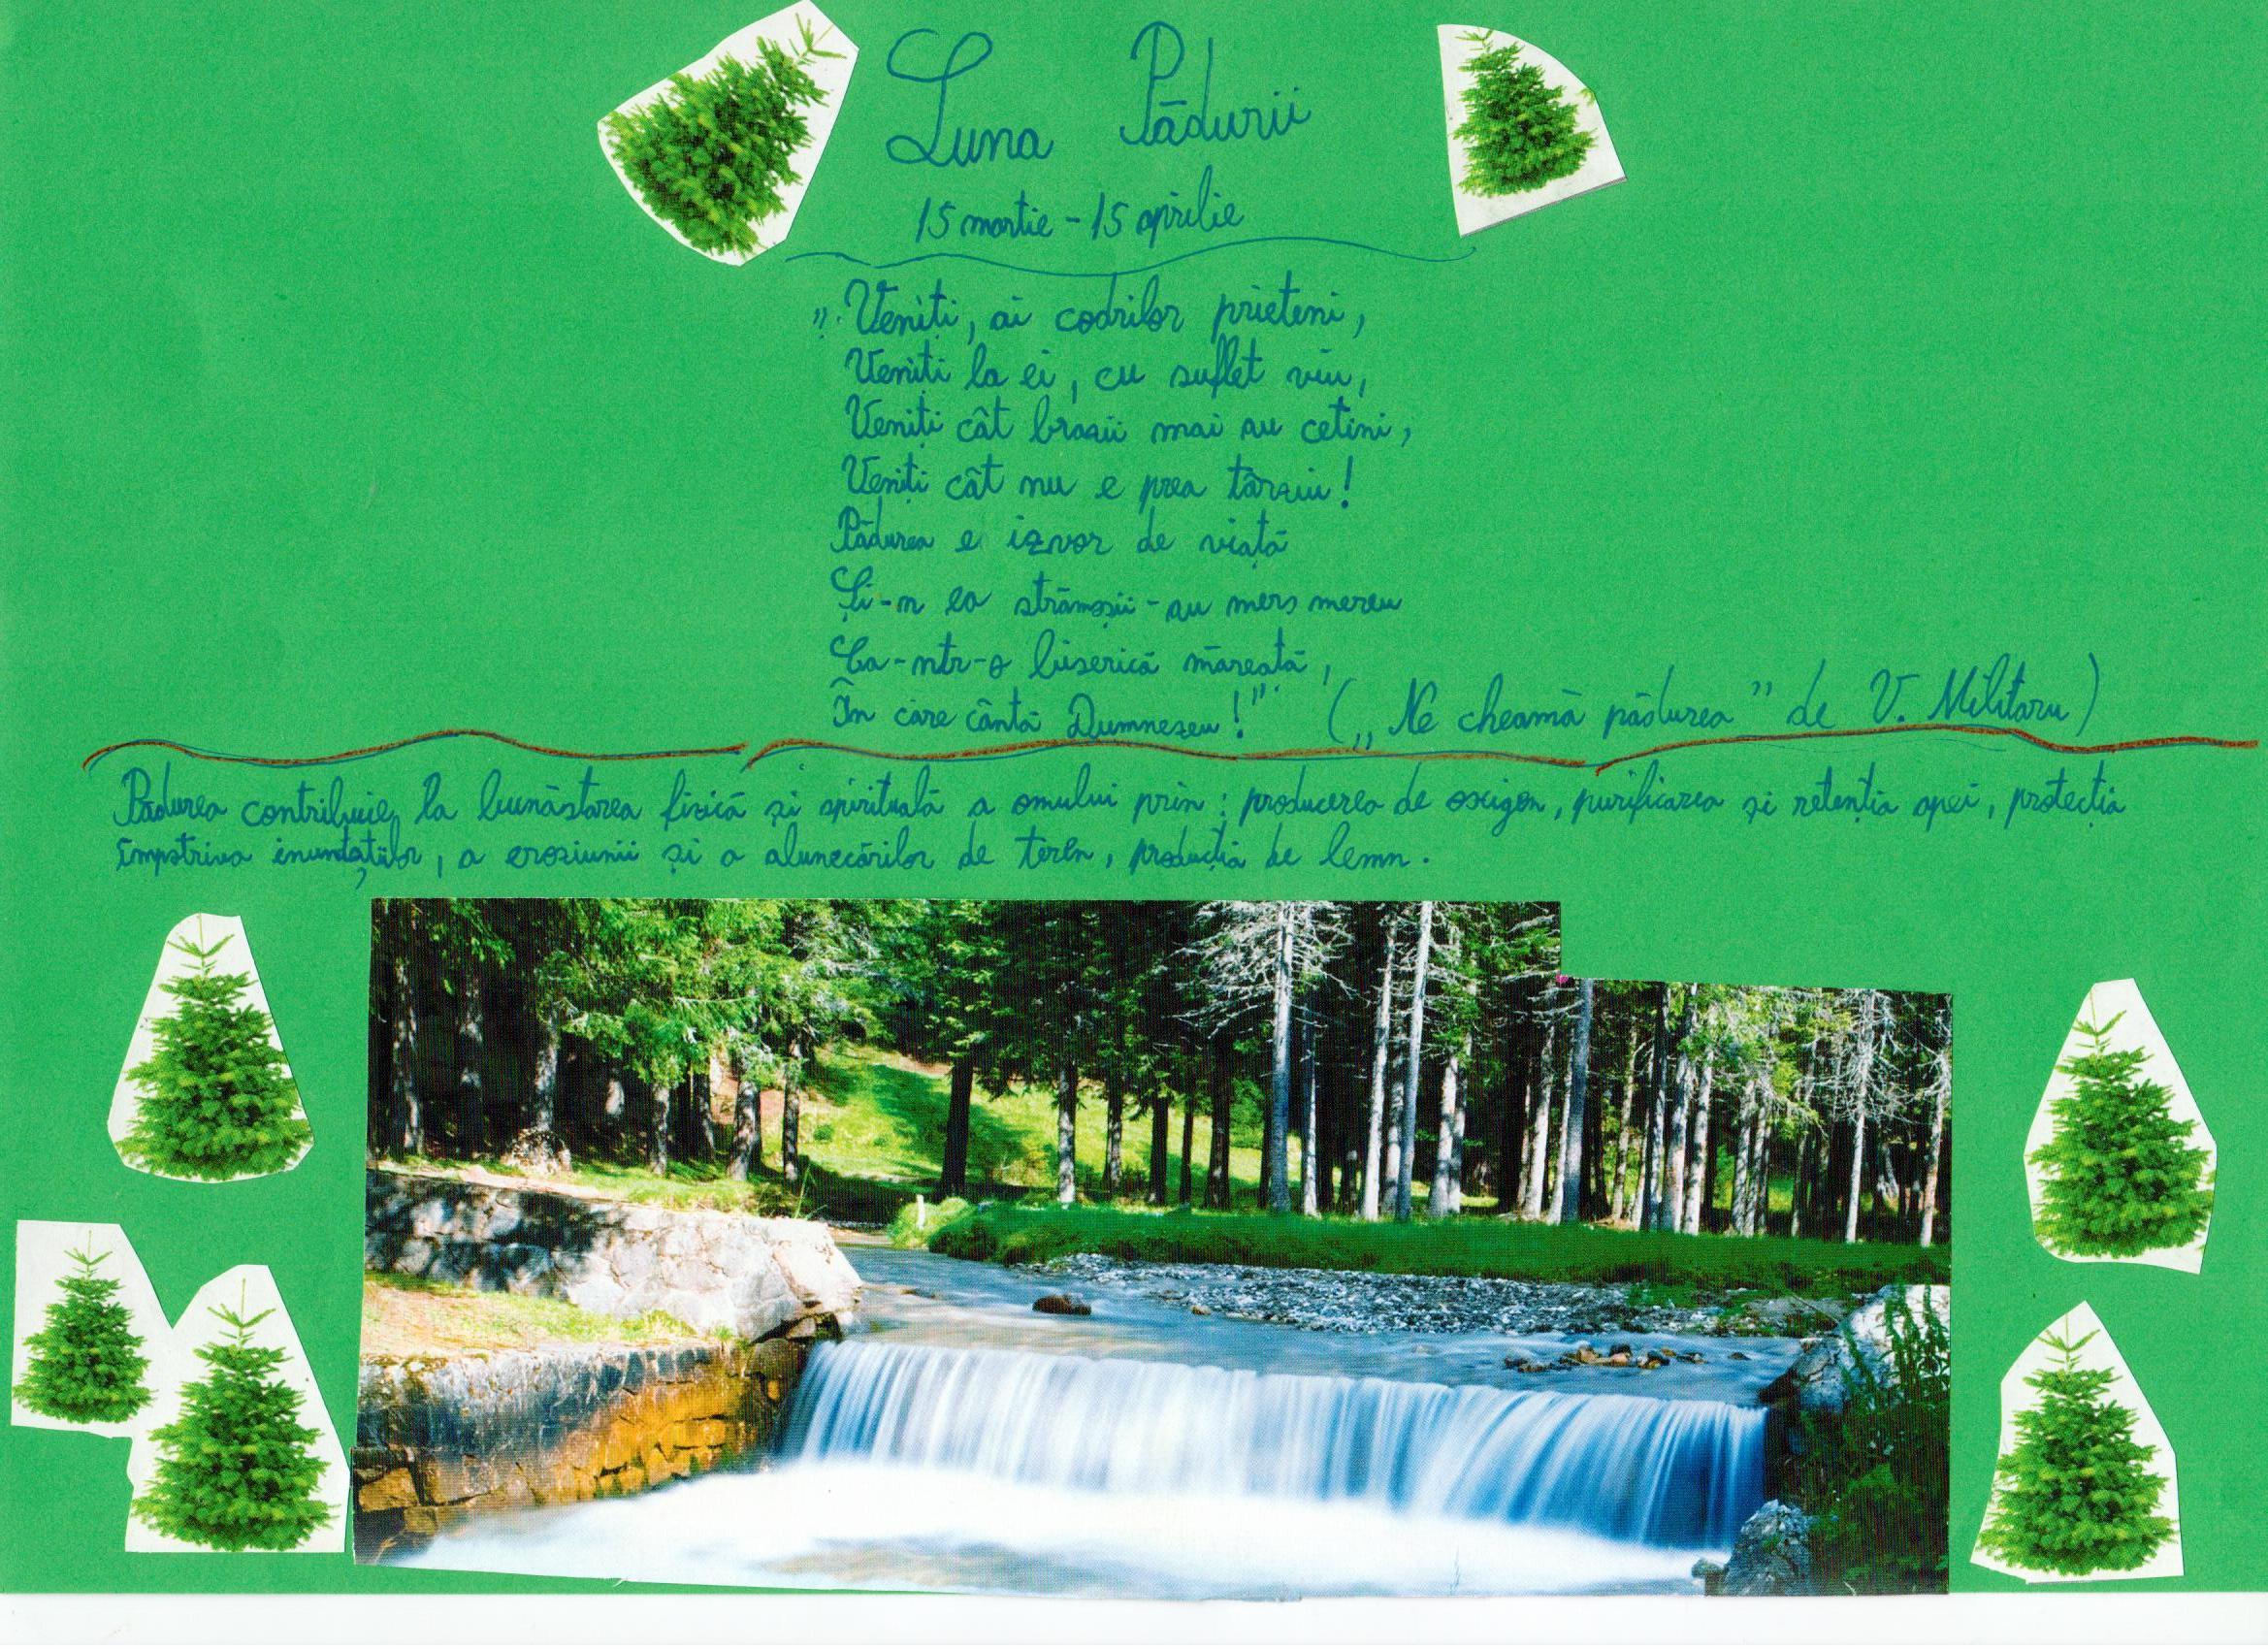 Luna Pădurii
15 martie - 15 aprilie
„Veniți, ai codrilor prieteni,
Veniți la ei, cu suflet viu,
Veniți cât brazii mai au cetini,
Veniți cât nu e prea târziu!
Pădurea e izvor de viață
Și-n ea strămoșii-au mers mereu
Ca-ntr-o biserică măreață,
În care cântă Dumnezeu!" („Ne cheamă pădurea" de V. Militaru)
Pădurea contribuie la bunăstarea fizică și spirituală a omului prin: producerea de oxigen, purificarea și retenția apei, protecția
împotriva inundațiilor, a eroziunii și a alunecărilor de teren, producția de lemn.